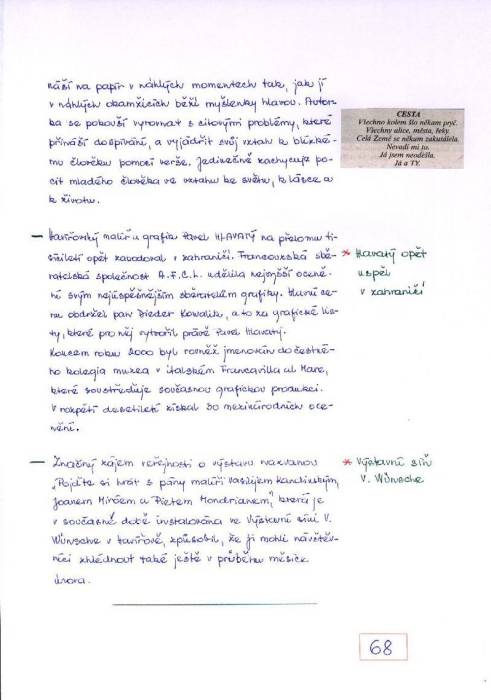 náší na papír v náhlých momentech tak, jak jí
v náhlých okamžicích běží myšlenky hlavou. Autor-
ka se pokouší vyrovnat s citovými problémy, které
přináší dospívání, a vyjádřit svůj vztah k blízké-
mu člověku pomocí verše. Jedinečně zachycuje po-
cit mladého člověka ve vztahu ke světu, k lásce a
k životu.
CESTA
Všechno kolem šlo někam pryč.
Všechny ulice, města, řeky.
Celá Země se někam zakutálela.
Nevadí mi to.
Já jsem neodešla.
Já a TY.
— Havířovský malíř a grafik Pavel HLAVATÝ na přelomu ti-
síciletí opět zabodoval v zahraničí. Francouzská sbě-
ratelská společnost A.F.C.L. udělila nejvyšší oceně-
ní svým nejúspěšnějším sběratelům grafiky. Hlavní ce-
nu obdržel pan Dieder Kowalik, a to za grafické lis-
ty, které pro něj vytvořil právě Pavel Hlavatý.
Koncem roku 2000 byl rovněž jmenován do čestné-
ho kolegia muzea v italském Francavilla al Mare,
které soustřeďuje současnou grafickou produkci.
V rozpětí desetiletí získal 30 mezinárodních oce-
nění.
* Hlavatý opět
uspěl
v zahraničí
— Značný zájem veřejnosti o výstavu nazvanou
"Pojďte si hrát s pány malíři Vasilijem Kandinským,
Joanem Miróem a Pietem Mondrianem", která je
v současné době instalována ve Výstavní síni V.
Wünsche v Havířově, způsobil, že ji mohli návštěv-
níci zhlédnout také ještě v průběhu měsíce
února.
* Výstavní síň
V. Wünsche
68